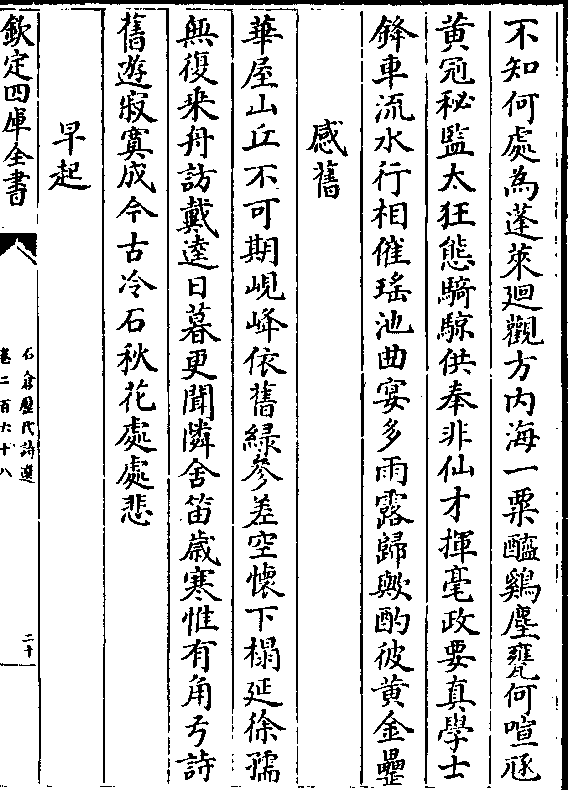 不知何處為蓬萊廻觀方内海一粟醯鷄塵甕何喧豗
黄冠秘監太狂態騎鯨供奉非仙才揮毫政要真學士
鋒車流水行相催瑤池曲宴多雨露歸歟酌彼黄金罍
感舊
華屋山丘不可期峴峰依舊緑參差空懷下榻延徐孺
無復乗舟訪戴逵日暮更聞隣舍笛歳寒惟有角弓詩
舊遊寂寞成今古冷石秋花處處悲
早起
欽定四庫全書
石倉歷代詩選
卷二百六十八
二十